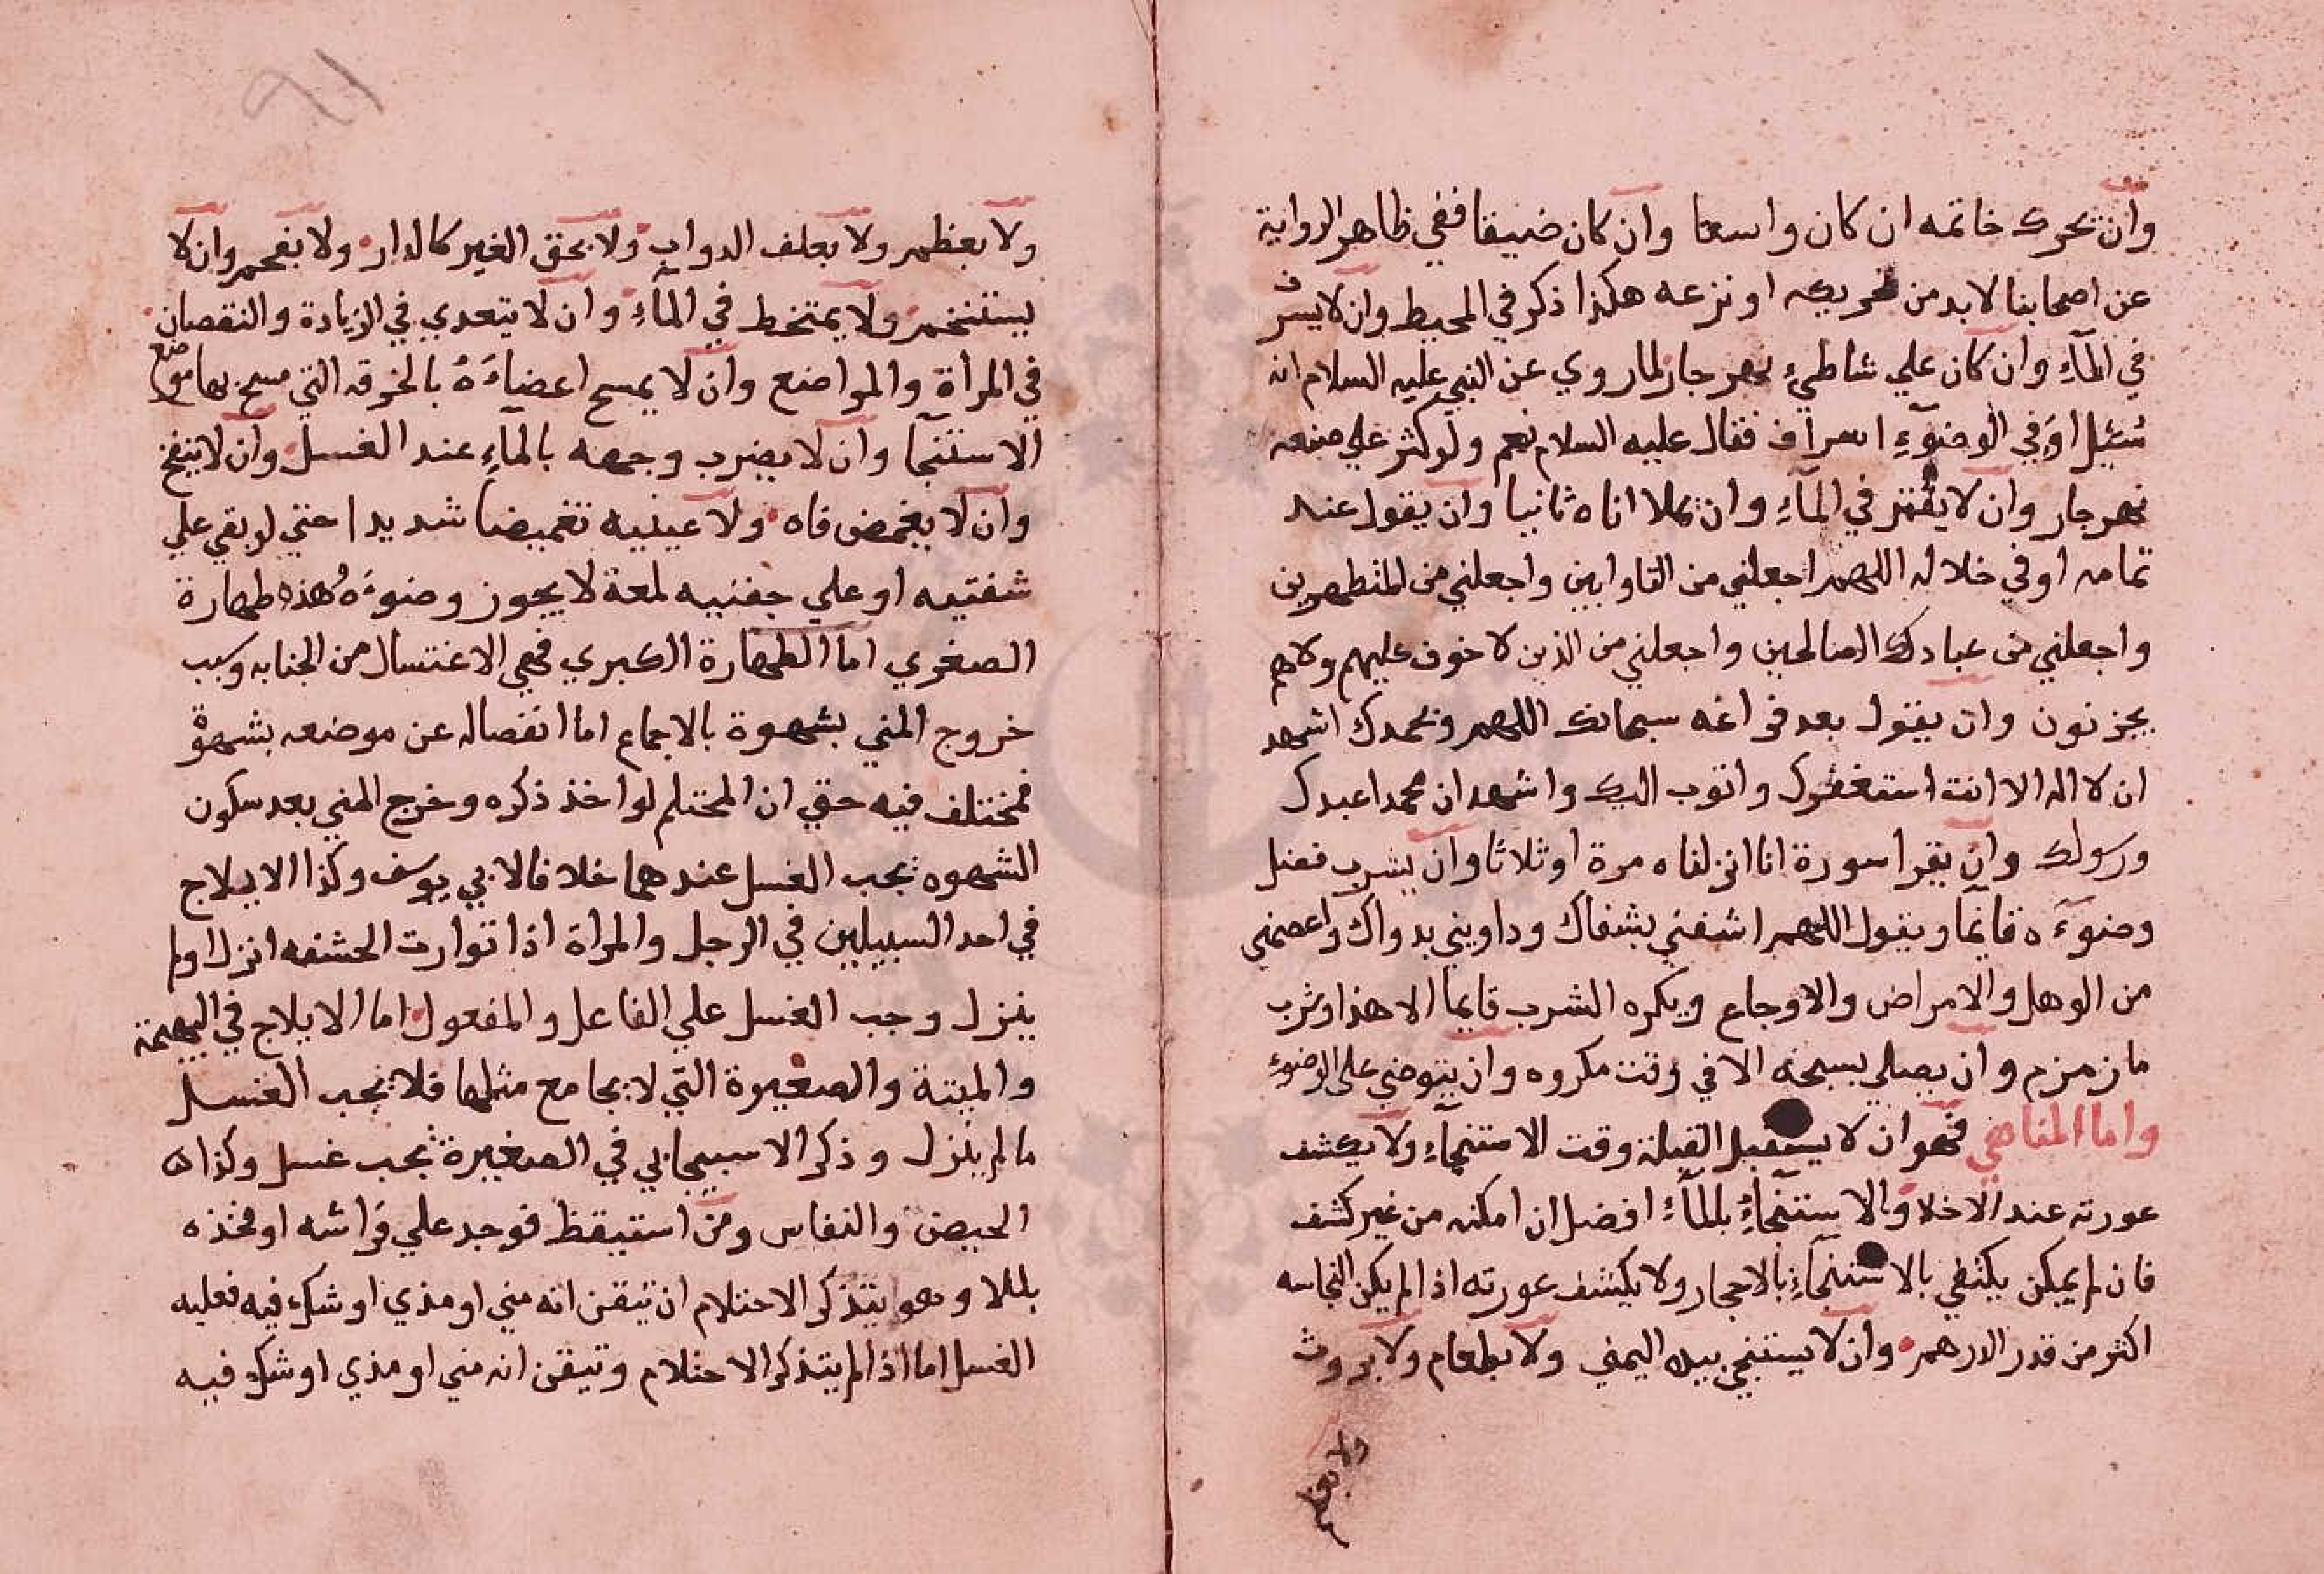 وان تحرك خاتمه ان كان واسعا وان كان ضيقا ففي ظاهر الرواية
عن اصحابنا لابد من تحريكه او نزعه هكذا ذكر في المحيط وان لا يسرف
في المآء وان كان علي شاطيء نهر جار لما روي عن النبي عليه السلام انه
سُئيل او في الوضوء اسراف فقال عليه السلام نعم ولو كنت علي ضفه
نهر جار وان لا يقتر في المآء وان يملا اناه ثانيا وان يقول عند
تمامه او في خلاله اللهم اجعلني من التوابين واجعلني من المتطهرين
واجعلني من عبادك الصالحين واجعلني من الذين لا خوف عليهم ولا هم
يحزنون وان يقول بعد فراغه سبحانك اللهم وبحمدك اشهد
ان لا اله الا انت استغفرك واتوب اليك واشهد ان محمدا عبدك
ورسولك وان يقرا سورة انا انزلناه مرة او ثلاثا وان يشرب فضل
وضوءه قايما ويقول اللهم اشفني بشفاك وداويني بدواك واعصمني
من الوهل والامراض والاوجاع ويكره الشرب قايما الا هذا وشرب
ما زمزم وان يصلي بسبحة الا في وقت مكروه وان يتوضي علي الوضوء
واما المناهي فهو ان لا يستقبل القبلة وقت الاستنجاء ولا يكشف
عورته عند الاخلا والاستنجاء بالمآء افضل ان امكنه من غير كشف
فان لم يمكن يكتفي بالاستنجاء بالاحجار ولا يكشف عورته اذا لم يكن النجاسه
اكثر من قدر الدرهم وان لا يستنجي بيده اليمني ولا بطعام ولا بروث
ولا بعظم
٢١
ولا بعظم ولا بعلف الدواب ولا بحق الغير كالدار ولا بفحم وان لا
يستنخم ولا يمتخط في المآء وان لا يتعدي في الزيادة والنقصان
في المراة والمواضع وان لا يمسح اعضاءه بالخرقه التي مسح بها موضع
الاستنجا وان لا يضرب وجهه بالمآء عند الغسل وان لا ينفخ
وان لا يغمض فاه ولا عينيه تغميضا شديدا حتي لو بقي علي
شفتيه او علي جفنيه لمعة لا يجوز وضوءه هذه طهارة
الصغري اما الطهارة الكبري فهي الاغتسال من الجنابه وسبب
خروج المني بشهوة بالاجماع اما انفصاله عن موضعه بشهوة
فمختلف فيه حتي ان المحتلم لو اخذ ذكره وخرج المني بعد سكون
الشهوه يجب الغسل عندهما خلافا لابي يوسف وكذا الايلاج
في احد السبيلين في الرجل والمراة اذا توارت الحشفه انزل او لم
ينزل وجب الغسل علي الفاعل والمفعول اما الايلاج في البهيمة
والميتة والصغيرة التي لا يجامع مثلها فلا يجب الغسل
ما لم ينزل وذكر الاسبيجابي في الصغيرة يجب غسل وكذا
الحيض والنفاس ومن استيقظ فوجد علي فراشه او فخذه
بللا وهو يتذكر الاحتلام ان تيقن انه مني او مذي او شك فيه فعليه
الغسل اما اذا لم يتذكر الاحتلام وتيقن انه مني او مذي او شك فيه